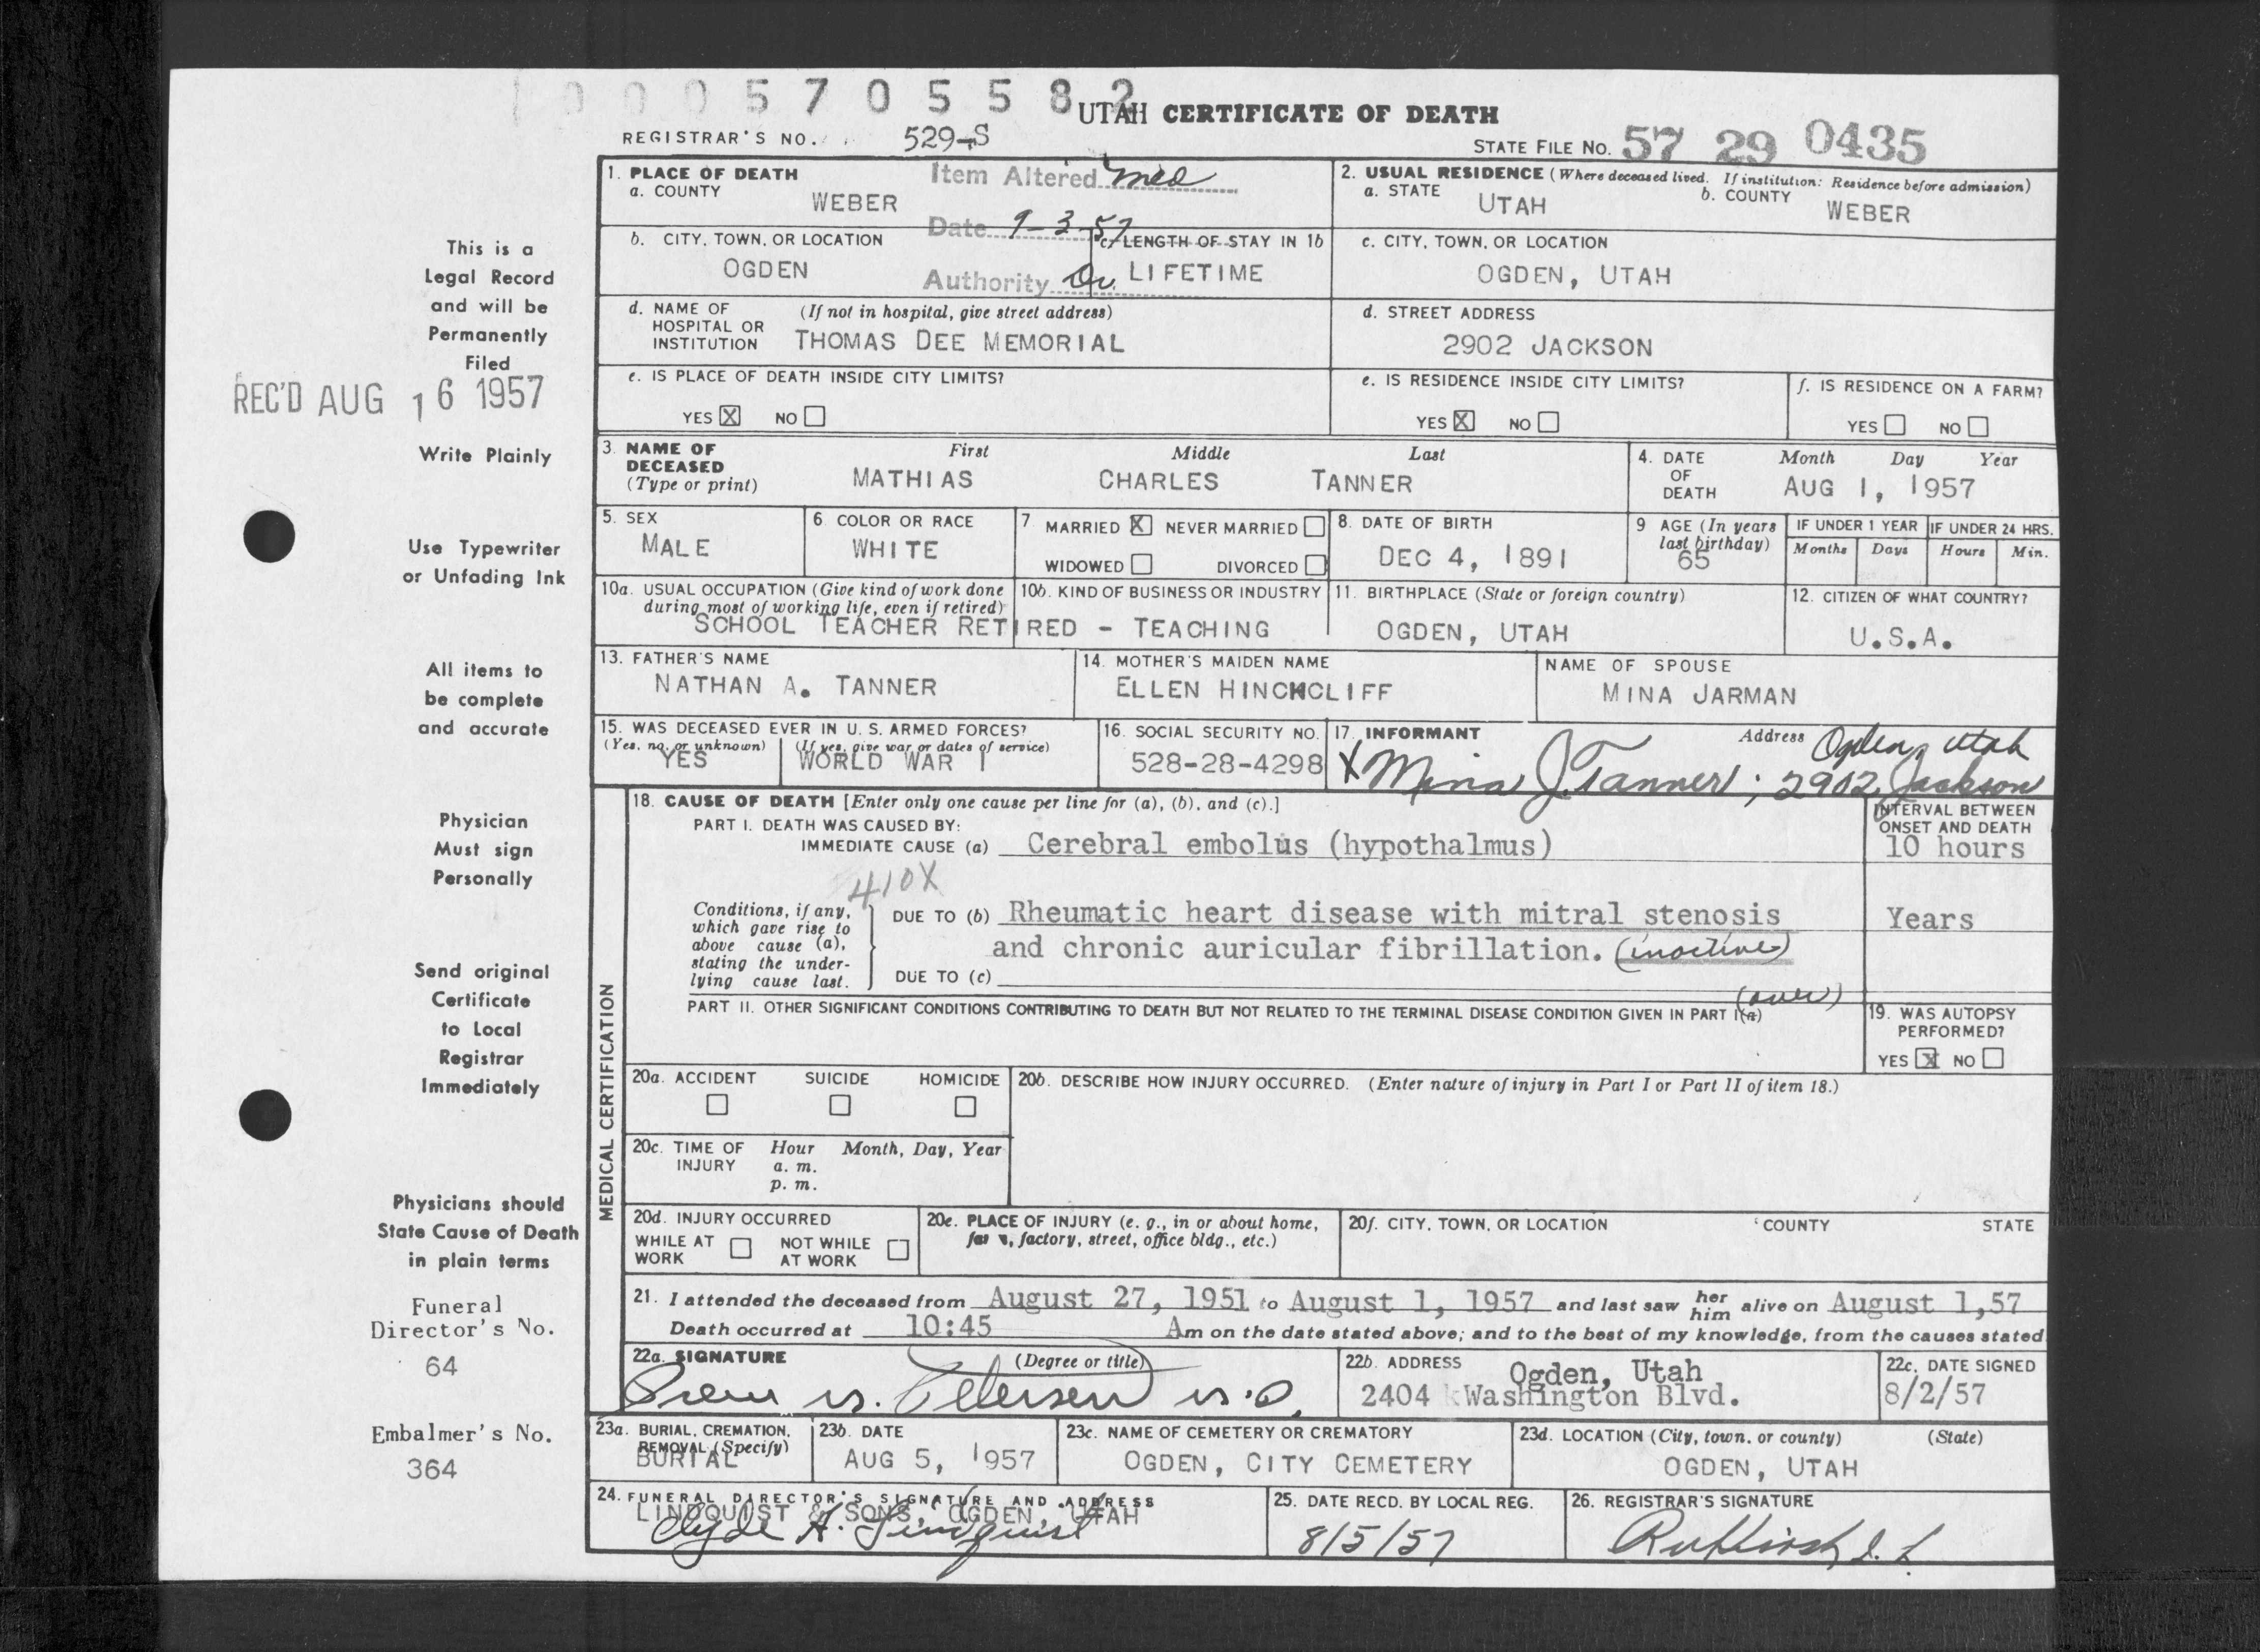 1 0 0 0 5 7 0 5 5 8 2
UTAH CERTIFICATE OF DEATH
REGISTRAR'S NO. 529-S
STATE FILE NO. 57 29 0435
1. PLACE OF DEATH
a. COUNTY
WEBER
Item Altered Med
Date 9-3-57
Authority Dr.
2. USUAL RESIDENCE (Where deceased lived. If institution: Residence before admission)
a. STATE
UTAH
b. COUNTY
WEBER
b. CITY, TOWN, OR LOCATION
OGDEN
c. LENGTH OF STAY IN 1b
LIFETIME
c. CITY, TOWN, OR LOCATION
OGDEN, UTAH
d. NAME OF HOSPITAL OR INSTITUTION
(If not in hospital, give street address)
THOMAS DEE MEMORIAL
d. STREET ADDRESS
2902 JACKSON
e. IS PLACE OF DEATH INSIDE CITY LIMITS?
YES X NO
e. IS RESIDENCE INSIDE CITY LIMITS?
YES X NO
f. IS RESIDENCE ON A FARM?
YES NO
3. NAME OF DECEASED (Type or print)
First Middle Last
MATHIAS CHARLES TANNER
4. DATE OF DEATH
Month Day Year
AUG 1, 1957
5. SEX
MALE
6. COLOR OR RACE
WHITE
7 MARRIED X NEVER MARRIED
WIDOWED DIVORCED
8. DATE OF BIRTH
DEC 4, 1891
9 AGE (In years last birthday)
65
IF UNDER 1 YEAR
Months Days
IF UNDER 24 HRS.
Hours Min.
10a. USUAL OCCUPATION (Give kind of work done during most of working life, even if retired)
10b. KIND OF BUSINESS OR INDUSTRY
SCHOOL TEACHER RETIRED - TEACHING
11. BIRTHPLACE (State or foreign country)
OGDEN, UTAH
12. CITIZEN OF WHAT COUNTRY?
U.S.A.
13. FATHER'S NAME
NATHAN A. TANNER
14. MOTHER'S MAIDEN NAME
ELLEN HINCHCLIFF
NAME OF SPOUSE
MINA JARMAN
15. WAS DECEASED EVER IN U. S. ARMED FORCES?
(Yes, no, or unknown) (If yes, give war or dates of service)
YES WORLD WAR I
16. SOCIAL SECURITY NO.
528-28-4298
17. INFORMANT Address
X Mina J. Tanner; 2902 Jackson
Ogden, Utah
MEDICAL CERTIFICATION
18. CAUSE OF DEATH [Enter only one cause per line for (a), (b), and (c).]
PART I. DEATH WAS CAUSED BY:
IMMEDIATE CAUSE (a) Cerebral embolus (hypothalmus)
INTERVAL BETWEEN ONSET AND DEATH
10 hours
410X
Conditions, if any, which gave rise to above cause (a), stating the underlying cause last.
DUE TO (b) Rheumatic heart disease with mitral stenosis
Years
and chronic auricular fibrillation. (inactive)
DUE TO (c)
(over)
PART II. OTHER SIGNIFICANT CONDITIONS CONTRIBUTING TO DEATH BUT NOT RELATED TO THE TERMINAL DISEASE CONDITION GIVEN IN PART I(a)
19. WAS AUTOPSY PERFORMED?
YES X NO
20a. ACCIDENT SUICIDE HOMICIDE
20b. DESCRIBE HOW INJURY OCCURRED. (Enter nature of injury in Part I or Part II of item 18.)
20c. TIME OF INJURY
Hour Month, Day, Year
a. m.
p. m.
20d. INJURY OCCURRED
WHILE AT WORK NOT WHILE AT WORK
20e. PLACE OF INJURY (e. g., in or about home, farm, factory, street, office bldg., etc.)
20f. CITY, TOWN, OR LOCATION COUNTY STATE
21. I attended the deceased from August 27, 1951 to August 1, 1957 and last saw her him alive on August 1,57
Death occurred at 10:45 Am on the date stated above; and to the best of my knowledge, from the causes stated
22a. SIGNATURE (Degree or title)
Petersen M.D.
22b. ADDRESS
Ogden, Utah
2404 Washington Blvd.
22c. DATE SIGNED
8/2/57
23a. BURIAL, CREMATION, REMOVAL (Specify)
BURIAL
23b. DATE
AUG 5, 1957
23c. NAME OF CEMETERY OR CREMATORY
OGDEN, CITY CEMETERY
23d. LOCATION (City, town, or county) (State)
OGDEN, UTAH
24. FUNERAL DIRECTOR'S SIGNATURE AND ADDRESS
LINDQUIST & SONS, OGDEN, UTAH
Clyde A. Lindquist
25. DATE RECD. BY LOCAL REG.
8/5/57
26. REGISTRAR'S SIGNATURE
This is a
Legal Record
and will be
Permanently
Filed
REC'D AUG 16 1957
Write Plainly
Use Typewriter
or Unfading Ink
All items to
be complete
and accurate
Physician
Must sign
Personally
Send original
Certificate
to Local
Registrar
Immediately
Physicians should
State Cause of Death
in plain terms
Funeral
Director's No.
64
Embalmer's No.
364